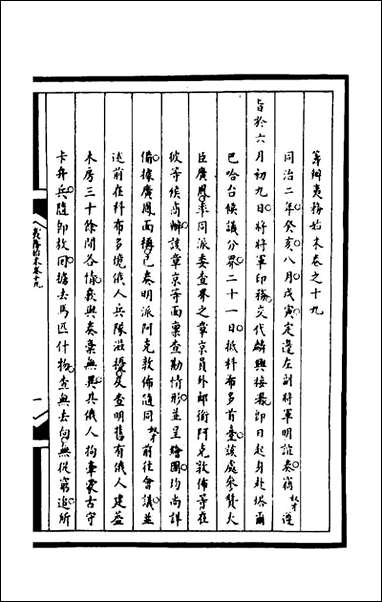 籌辦夷務始末卷之十九
同治二年癸亥八月戊寅定邊左副將軍明誼奏竊奴才遵
旨於六月初九日將將軍印務交代麟興接署即日起身赴塔爾
巴哈台候議分界二十一日抵科布多首臺該處參贊大
臣廣鳳率同派委查界之章京員外郎銜阿克敦佈等在
彼等候商辦該章京等面稟查勘情形並呈繪圖均尚詳
備據廣鳳面稱已奏明派阿克敦佈隨同奴才前往會議並
述前在科布多境俄人兵隊滋擾及查明舊有俄人建蓋
木房三十餘間各條覈與奏稟無異其俄人拘拏蒙古守
卡弁兵隨即放回搶去馬匹什物查無去向無從窮追所
夷務始末卷十九
一